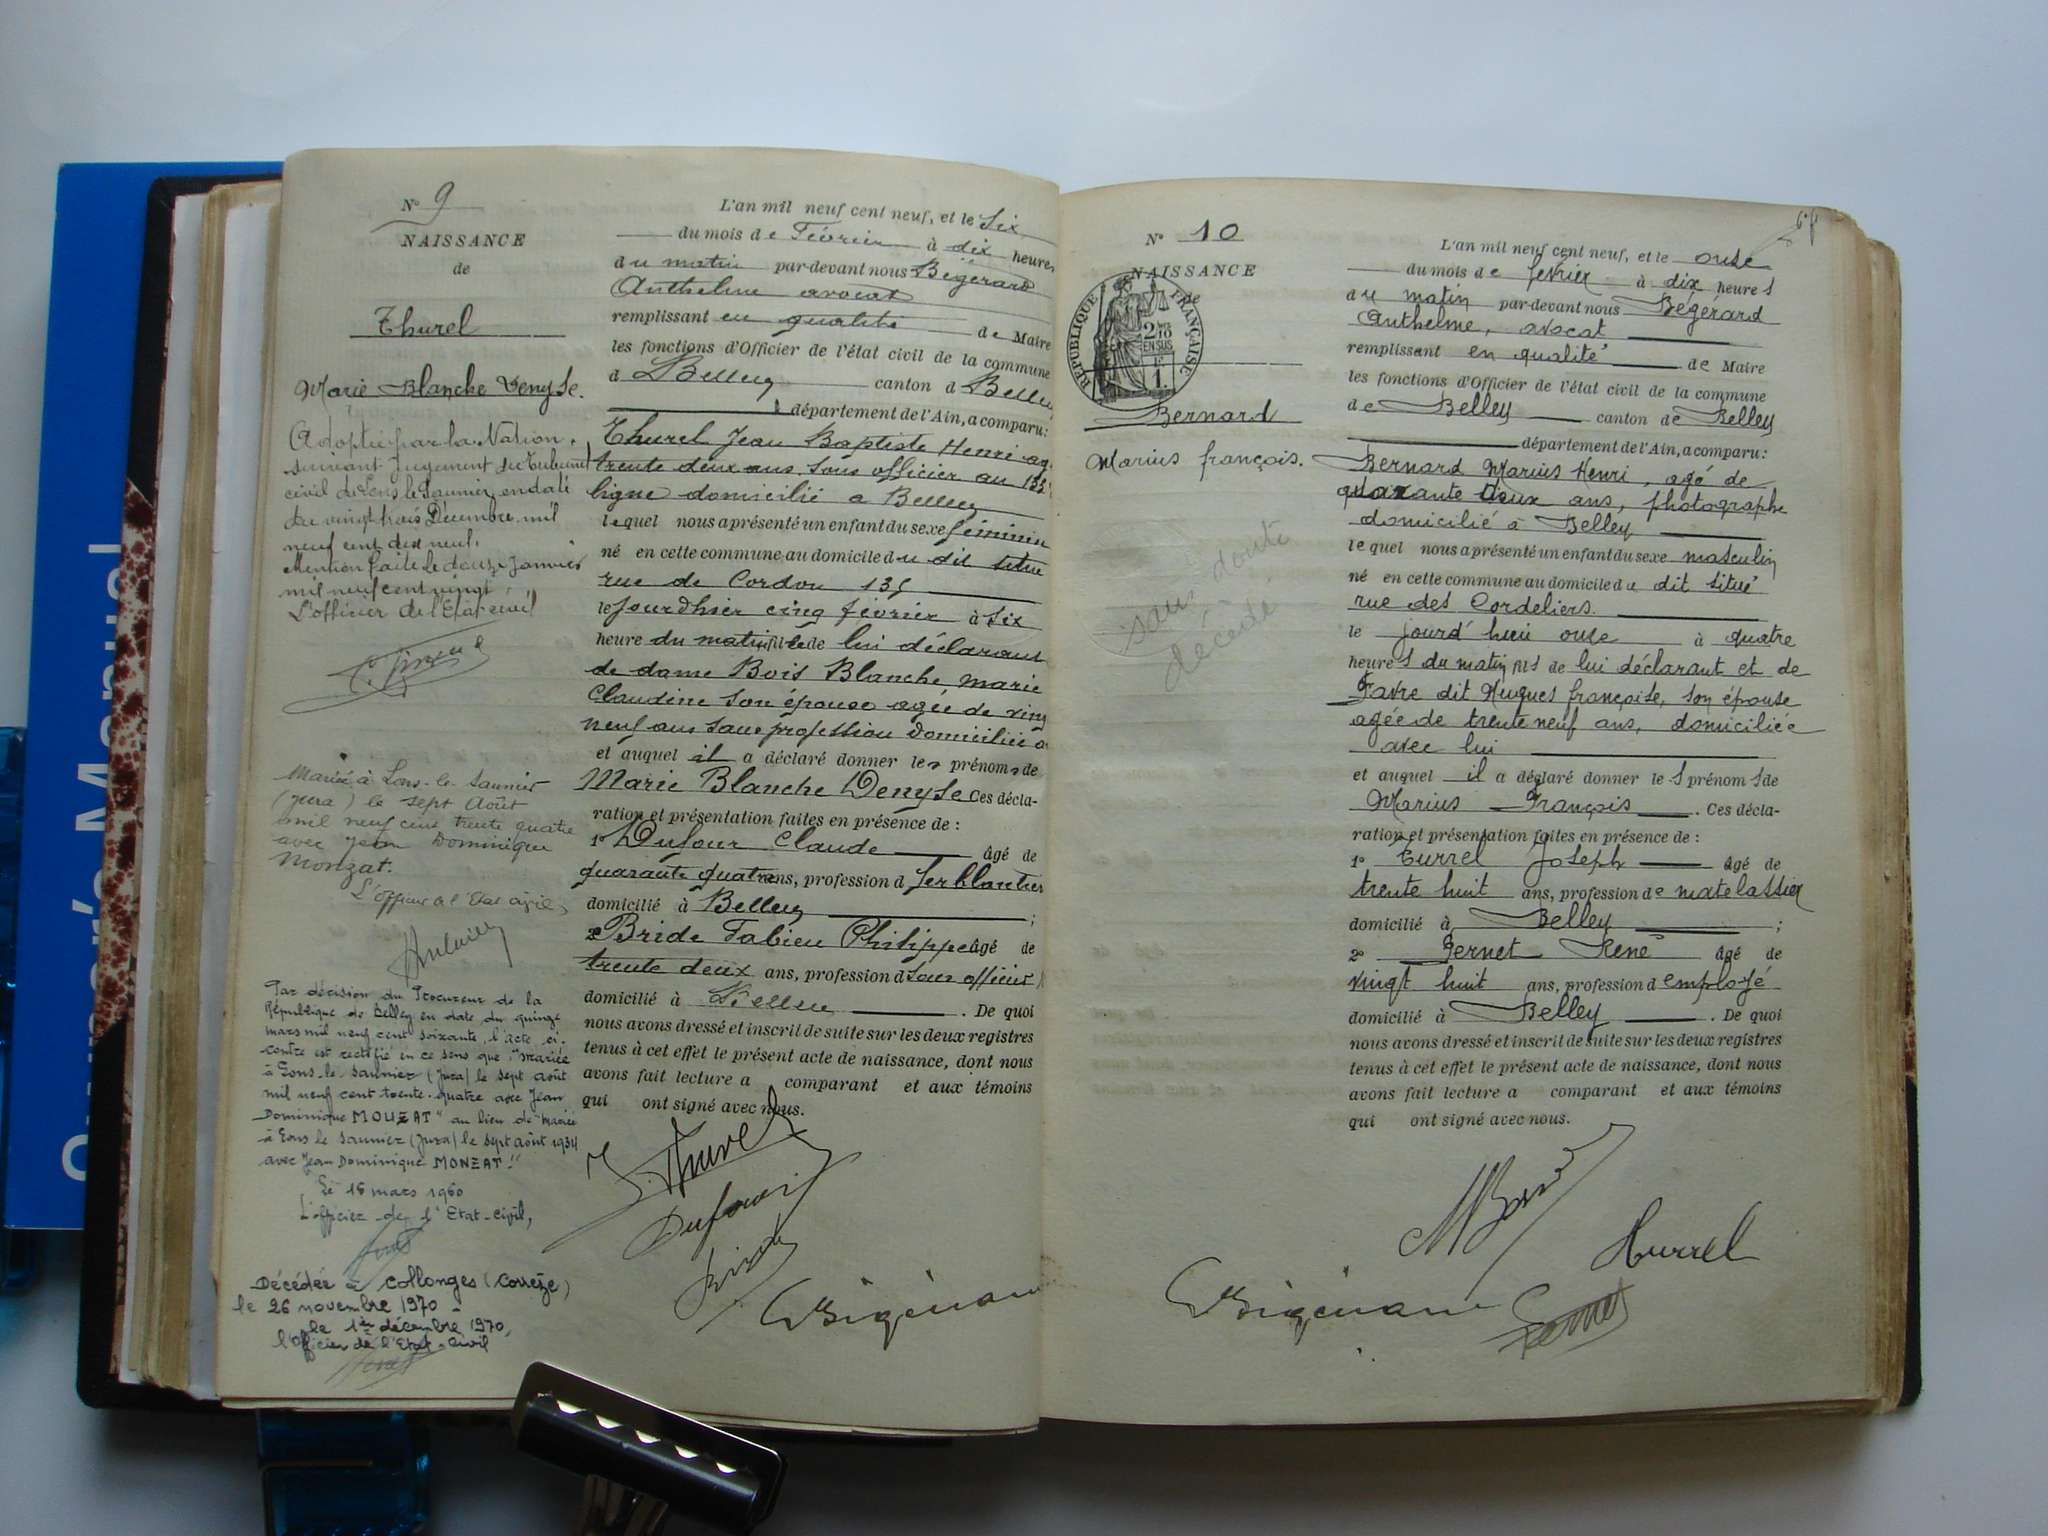 N° 9
NAISSANCE
de
Thurel
Marie Blanche Denyse.
Adoptée par la Nation,
suivant jugement du Tribunal
civil de Lons le Saunier, en date
du vingt trois Décembre mil
neuf cent dix neuf.
Mention faite le douze Janvier
mil neuf cent vingt
L'officier de l'Etat civil
Mariée à Lons-le-Saunier
(Jura) le sept Août
mil neuf cent trente quatre
avec Jean Dominique
Monzat.
L'officier de l'Etat civil,
Par décision du Procureur de la
République de Belley en date du quinze
mars mil neuf cent soixante, l'acte ci-
contre est rectifié en ce sens que : "mariée
à Lons-le-Saunier (Jura) le sept août
mil neuf cent trente-quatre avec Jean
Dominique MOUZAT" au lieu de "mariée
à Lons le Saunier (Jura) le sept août 1934
avec Jean Dominique MONZAT."
Le 16 mars 1960
L'officier de l'Etat-civil,
Décédée à Collonges (Corrèze)
le 26 novembre 1970 -
le 1er décembre 1970,
l'Officier de l'Etat-Civil
L'an mil neuf cent neuf, et le Six
du mois de Février à dix heures
du matin par-devant nous Bégérard
Anthelme avocat
remplissant en qualité de Maire
les fonctions d'Officier de l'état civil de la commune
d Belley canton d Belley
département de l'Ain, a comparu:
Thurel Jean Baptiste Henri âgé
trente deux ans, Sous officier au 133
ligne domicilié à Belley
lequel nous a présenté un enfant du sexe féminin
né en cette commune au domicile du dit situé
rue de Cordon 135
le jourd'hier cinq février à six
heure du matin fille de lui déclarant
de dame Bois Blanche Marie
Claudine son épouse agée de vingt
neuf ans sans profession domiciliée a
et auquel il a déclaré donner les prénoms de
Marie Blanche Denyse Ces décla-
ration et présentation faites en présence de :
1° Dufour Claude âgé de
quarante quatre ans, profession d ferblantier
domicilié à Belley ;
2° Bride Fabien Philippe âgé de
trente deux ans, profession d Sous officier
domicilié à Belley . De quoi
nous avons dressé et inscrit de suite sur les deux registres
tenus à cet effet le présent acte de naissance, dont nous
avons fait lecture a comparant et aux témoins
qui ont signé avec nous.
J. Thurel
Dufour
Bride
Bégérard
6
N° 10
NAISSANCE
de
RÉPUBLIQUE FRANÇAISE
2/10
EN SUS
1 F.
Bernard
Marius françois.
sans doute
décédé
L'an mil neuf cent neuf, et le onze
du mois de février à dix heures
du matin par-devant nous Bégérard
Anthelme, avocat
remplissant en qualité de Maire
les fonctions d'Officier de l'état civil de la commune
de Belley canton de Belley
département de l'Ain, a comparu:
Bernard Marius Henri, agé de
quarante deux ans, photographe
domicilié à Belley
lequel nous a présenté un enfant du sexe masculin
né en cette commune au domicile du dit situé
rue des Cordeliers.
le jourd'hui onze à quatre
heures du matin fils de lui déclarant et de
Favre dit Hugues françoise, son épouse
agée de trente neuf ans, domiciliée
avec lui
et auquel il a déclaré donner les prénoms de
Marius François . Ces décla-
ration et présentation faites en présence de :
1° Turrel Joseph âgé de
trente huit ans, profession de matelassier
domicilié à Belley ;
2° Pernet René âgé de
vingt huit ans, profession d employé
domicilié à Belley . De quoi
nous avons dressé et inscrit de suite sur les deux registres
tenus à cet effet le présent acte de naissance, dont nous
avons fait lecture a comparant et aux témoins
qui ont signé avec nous.
Turrel
Bégérard
Pernet